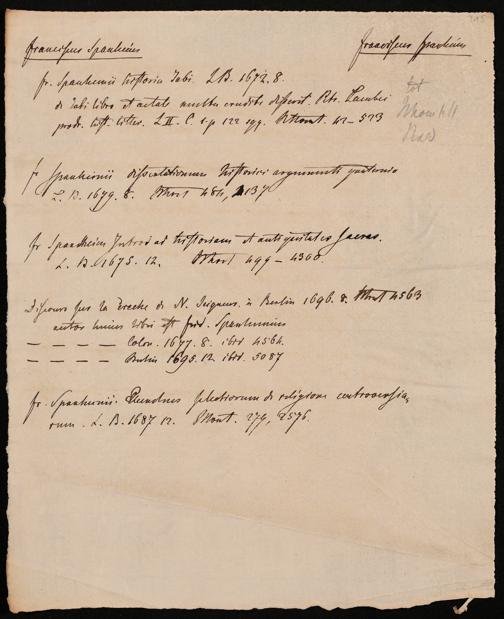 Franciscus Spanhemius Franciscus Spanhemius
fr. Spanhemii historia Jobi. L.B. 1672. 8.
de Jobi libro et aetate multa erudite disserit. Petr. Lambec
prodr. hist. litter. L. II. C. p. 122 sqq. 42 – 523
fr. Spanhemii dissertationum historici argumenti quaternio
L. B. 1679. 8. 484, 2137
fr. Spanhemii Introd. ad historiam et antiquitates sacras.
L. B. 1675. 12. 499 – 4300.
Discours sur la Creche de N. Seigneur. à Berlin 1696. 8. 4563
autor hujus libri est Spanhemius
– – – – Colon. 1677. 8. ibid. 4564.
– – – – Berlin 1695. 12. ibid. 5087
fr. Spanhemii Elenchus selectiorum de religione controversia-
rum. L. B. 1687 12. 279, 2576.